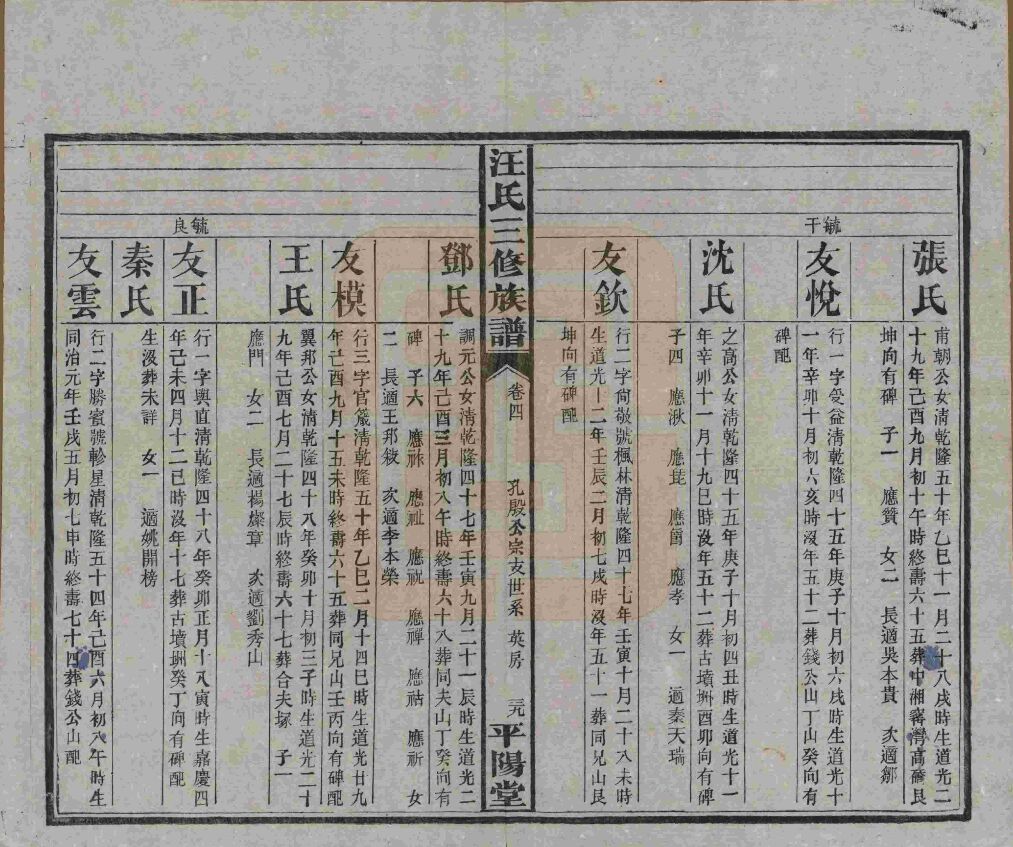 張氏
甫朝公女清乾隆五十年乙巳十一月二十八戌時生道光二
十九年己酉九月初十午時終壽六十五葬中湘審灣高
坤向有碑 子一 應贊 女二 長適吳本貴 次適鄒
毓干
友悅
行一字受益清乾隆四十五年庚子十月初六戌時生道光十
一年辛卯十月初六亥時沒年五十二葬錢公山丁山癸向有
碑配
沈氏
之高公女清乾隆四十五年庚子十月初四丑時生道光十一
年辛卯十一月十九巳時沒年五十二葬古墳坳酉卯向有碑
子四 應湫 應琵 應 應孝 女一 適秦天瑞
友欽
行二字尚敬號楓林清乾隆四十七年壬寅十月二十八未時
生道光十二年壬辰二月初七戌時沒年五十一葬同兄山艮
坤向有碑配
汪氏三修族譜 卷四 孔殷公宗支世系 英房 元 平陽堂
鄧氏
調元公女清乾隆四十七年壬寅九月二十一辰時生道光二
十九年己酉三月初八午時終壽六十八葬同夫山丁癸向有
碑 子六 應祿 應祉 應祝 應禪 應祜 應祈 女
二 長適王邦敍 次適李本榮
友模
行三字官箴清乾隆五十年乙巳二月十四巳時生道光廿九
年己酉九月十五未時終壽六十五葬同兄山壬丙向有碑配
王氏
翼邦公女清乾隆四十八年癸卯十月初三子時生道光二十
九年己酉七月二十七辰時終壽六十七葬合夫塚 子一
應門 女二 長適楊燦章 次適劉秀山
毓良
友正
行一字輿直清乾隆四十八年癸卯正月十八寅時生嘉慶四
年己未四月十二巳時沒年十七葬古墳坳癸丁向有碑配
秦氏
生沒葬未詳 女一 適姚開榜
友雲
行二字勝賓號軫星清乾隆五十四年己酉六月初八午時生
同治元年壬戌五月初七申時終壽七十四葬錢公山配